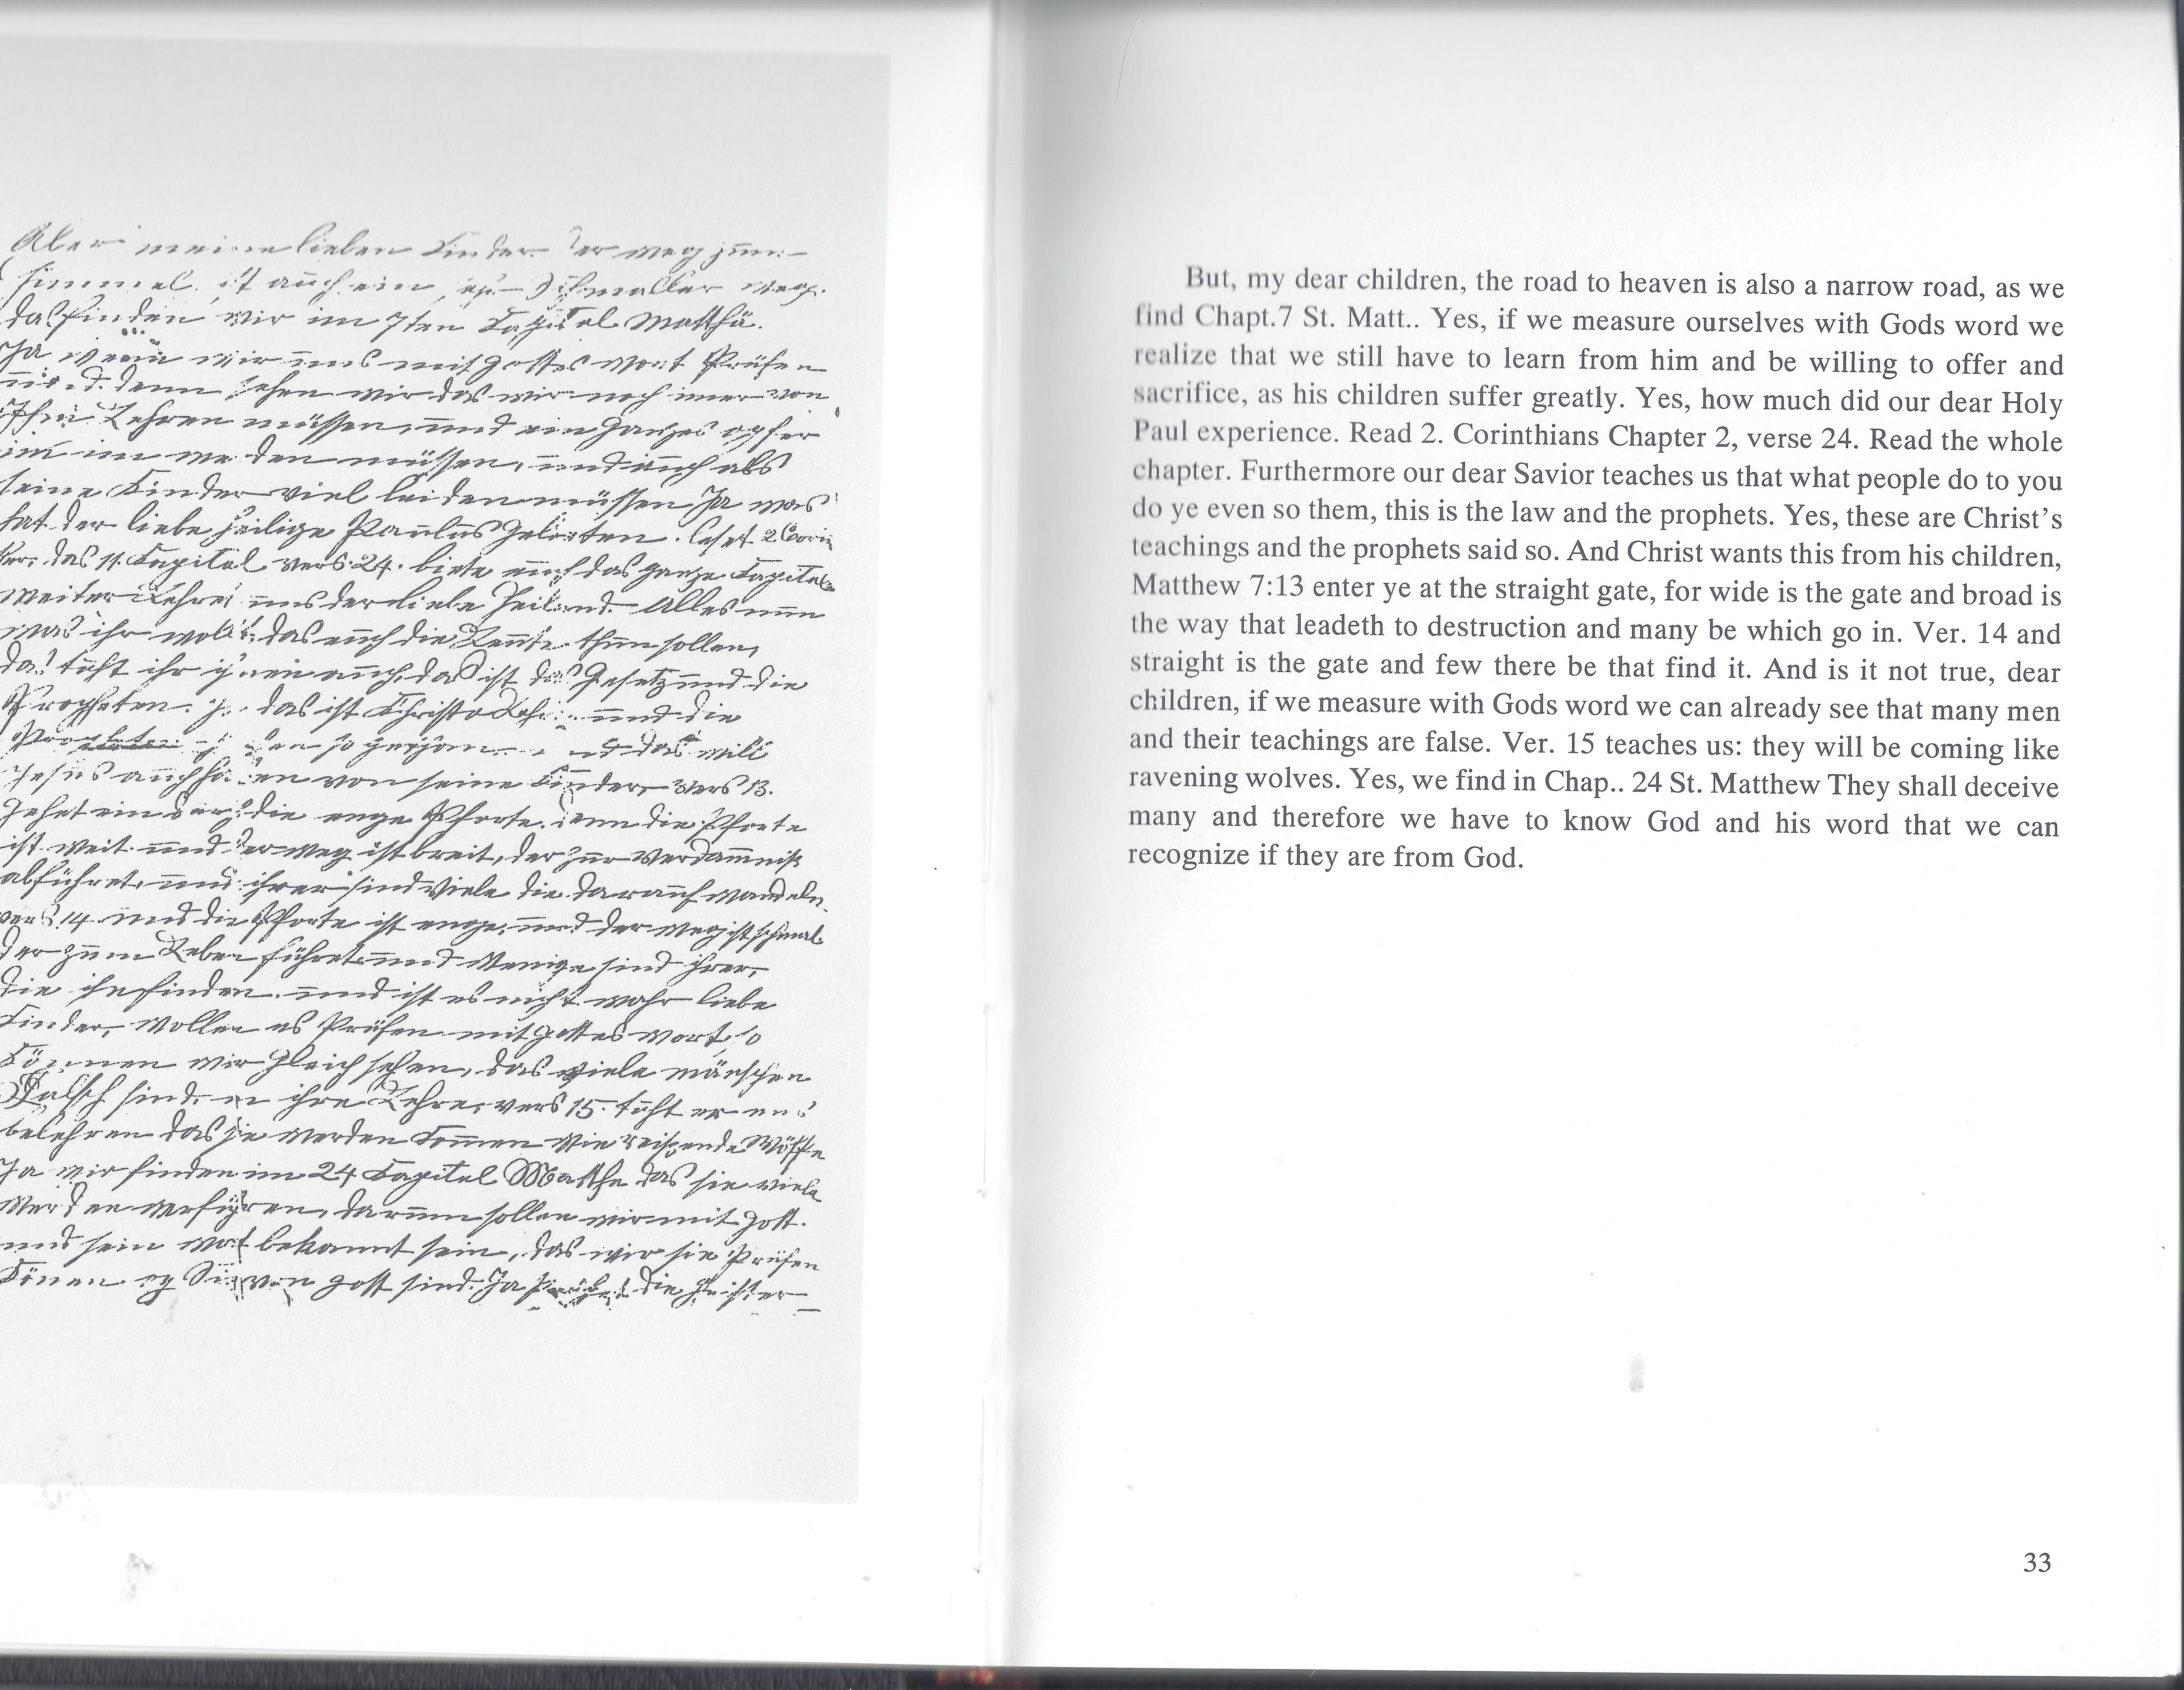 Aber meine lieben Kinder der weg zum
Himmel ist auch ein schmaller weg.
das finden wir im 7ten Kapitel Matthä.
Ja wenn wir uns mit gottes wort Prüfen
und denn sehen wir das wir noch imer von
Ihm Lehren müssen, und ein ganzes opfer
müssen, und auch als
seine Kinder viel leiden müssen Ja was
hat der liebe heilige Paulus gelitten. leset 2 Corin
ther, das 11. Kapitel vers 24. biete euch das ganze Kapitel
weiter Lehret uns der liebe Heiland. Alles nun
was ihr wollt. das euch die Leute thun sollen,
das tuht ihr ihnen auch, das ist das Gesetz und die
Propheten. Ja das ist Christo Lehre und die
Propheten haben so und das will
Jesus auch haben von seine Kinder, vers 13.
Gehet ein durch die enge Pforte. denn die Pforte
ist weit und der weg ist breit, der zur verdammniß
abführet, und ihrer sind Viele die darauf wandeln.
vers 14 und die Pforte ist enge, und der weg ist schmal
der zum Leben führet und Wenige sind ihrer,
die ihn finden. und ist es nicht wahr liebe
Kinder, wollen es Prüfen mit gottes wort, so
Können wir gleich sehen, das viele mänschen
Falsch sind, in ihre Lehre, vers 15. tuht er uns
belehren das sie werden Komen Wie reißende Wölfe
Ja wir finden im 24 Kapitel Matthe das sie viele
Werden verführen, darum sollen wir mit gott.
und sein wort bekannt sein, das wir sie Prüfen
Könen ob Sie von gott sind. Ja Prüfet die geister
But, my dear children, the road to heaven is also a narrow road, as we
find Chapt.7 St. Matt.. Yes, if we measure ourselves with Gods word we
realize that we still have to learn from him and be willing to offer and
sacrifice, as his children suffer greatly. Yes, how much did our dear Holy
Paul experience. Read 2. Corinthians Chapter 2, verse 24. Read the whole
chapter. Furthermore our dear Savior teaches us that what people do to you
do ye even so them, this is the law and the prophets. Yes, these are Christ's
teachings and the prophets said so. And Christ wants this from his children,
Matthew 7:13 enter ye at the straight gate, for wide is the gate and broad is
the way that leadeth to destruction and many be which go in. Ver. 14 and
straight is the gate and few there be that find it. And is it not true, dear
children, if we measure with Gods word we can already see that many men
and their teachings are false. Ver. 15 teaches us: they will be coming like
ravening wolves. Yes, we find in Chap.. 24 St. Matthew They shall deceive
many and therefore we have to know God and his word that we can
recognize if they are from God.
33